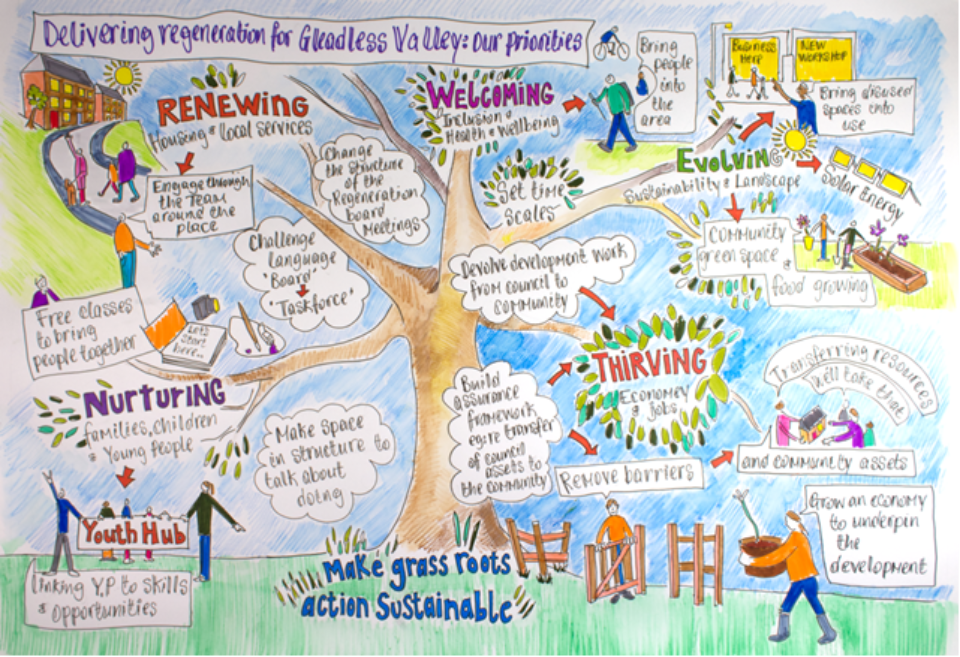 Delivering regeneration for Gleadless Valley: our priorities
RENEWING
Housing & local services
Engage through
the Team
around the
place
Change
the structure
of the
Regeneration
board
Meetings
Challenge
language
"Board"
"Taskforce"
WELCOMING
Inclusion &
Health & Wellbeing
Bring
people
into
the
area
Set time
scales
BUSINESS
HERE
NEW
WORKSHOP
Bring disused
spaces into
use
EVOLVING
Sustainability & Landscape
Solar Energy
COMMUNITY
green space
&
food growing
Devolve development work
from council to
community
Free classes
to bring
people together
Let's
start
here..
NURTURING
families, children
& Young People
Youth Hub
linking Y.P to skills
& opportunities
Make space
in structure to
talk about
doing
Build
assurance
framework
eg: re transfer
of council
assets to
the community
THIRVING
Economey
& Jobs
Remove barriers
Transferring resources
we'll take that
and community assets
Grow an economy
to underpin
the
development
Make grass roots
action Sustainable